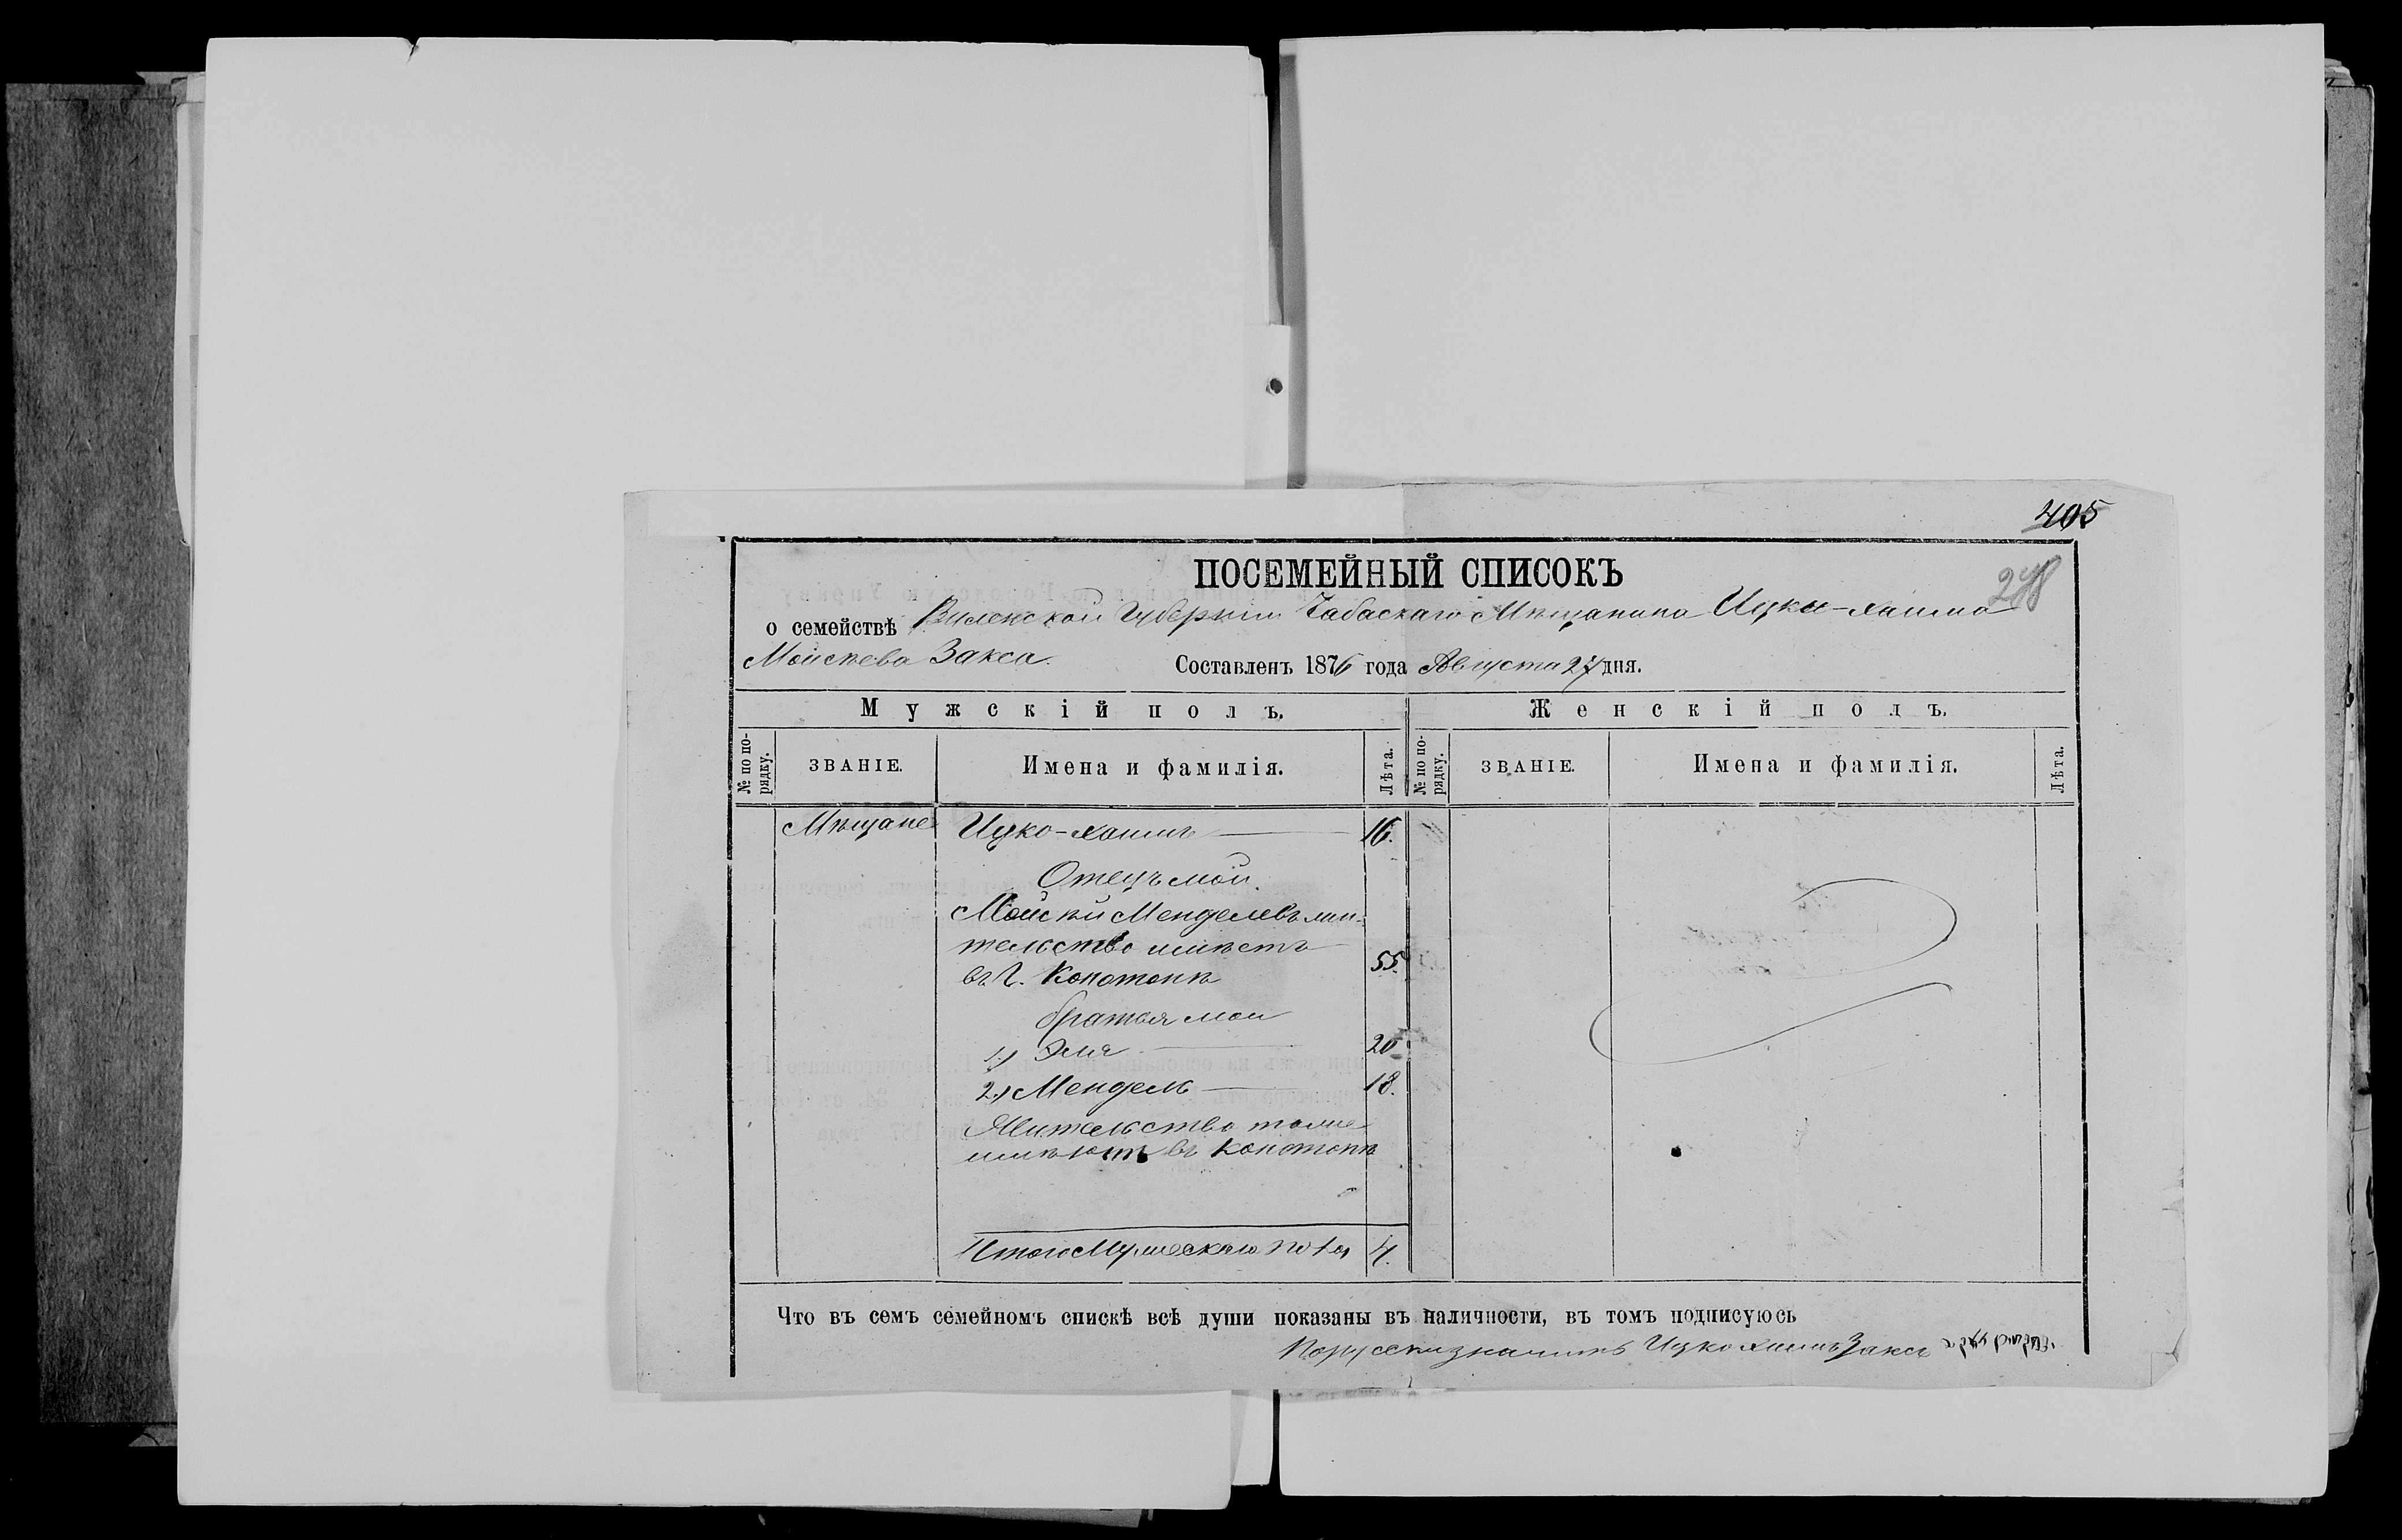 405
ПОСЕМЕЙНЫЙ СПИСОКЪ
248
о семействѣ Виленской Губерніи Мѣщанина Ицки-Хаима
Моисѣева Закса. Составленъ 1876 года Августа 27 дня.
Мужскій полъ. Женскій полъ.
№ по порядку. ЗВАНІЕ. Имена и фамилія. Лѣта. № по порядку. ЗВАНІЕ. Имена и фамилія. Лѣта.
Мѣщане Ицко-Хаимъ 16.
Отецъ мой.
Моисѣй Менделевъ жи-
тельство имѣетъ
въ г. Конотопѣ 55.
братья мои
1.) Эля 20
2.) Мендель 18.
Жительство тоже
имѣютъ въ Конотопѣ
Итого Мужескаго пола 4.
Что въ семъ семейномъ спискѣ всѣ души показаны въ наличности, въ томъ подписуюсь
Порусски значитъ Ицко Хаимъ Заксъ